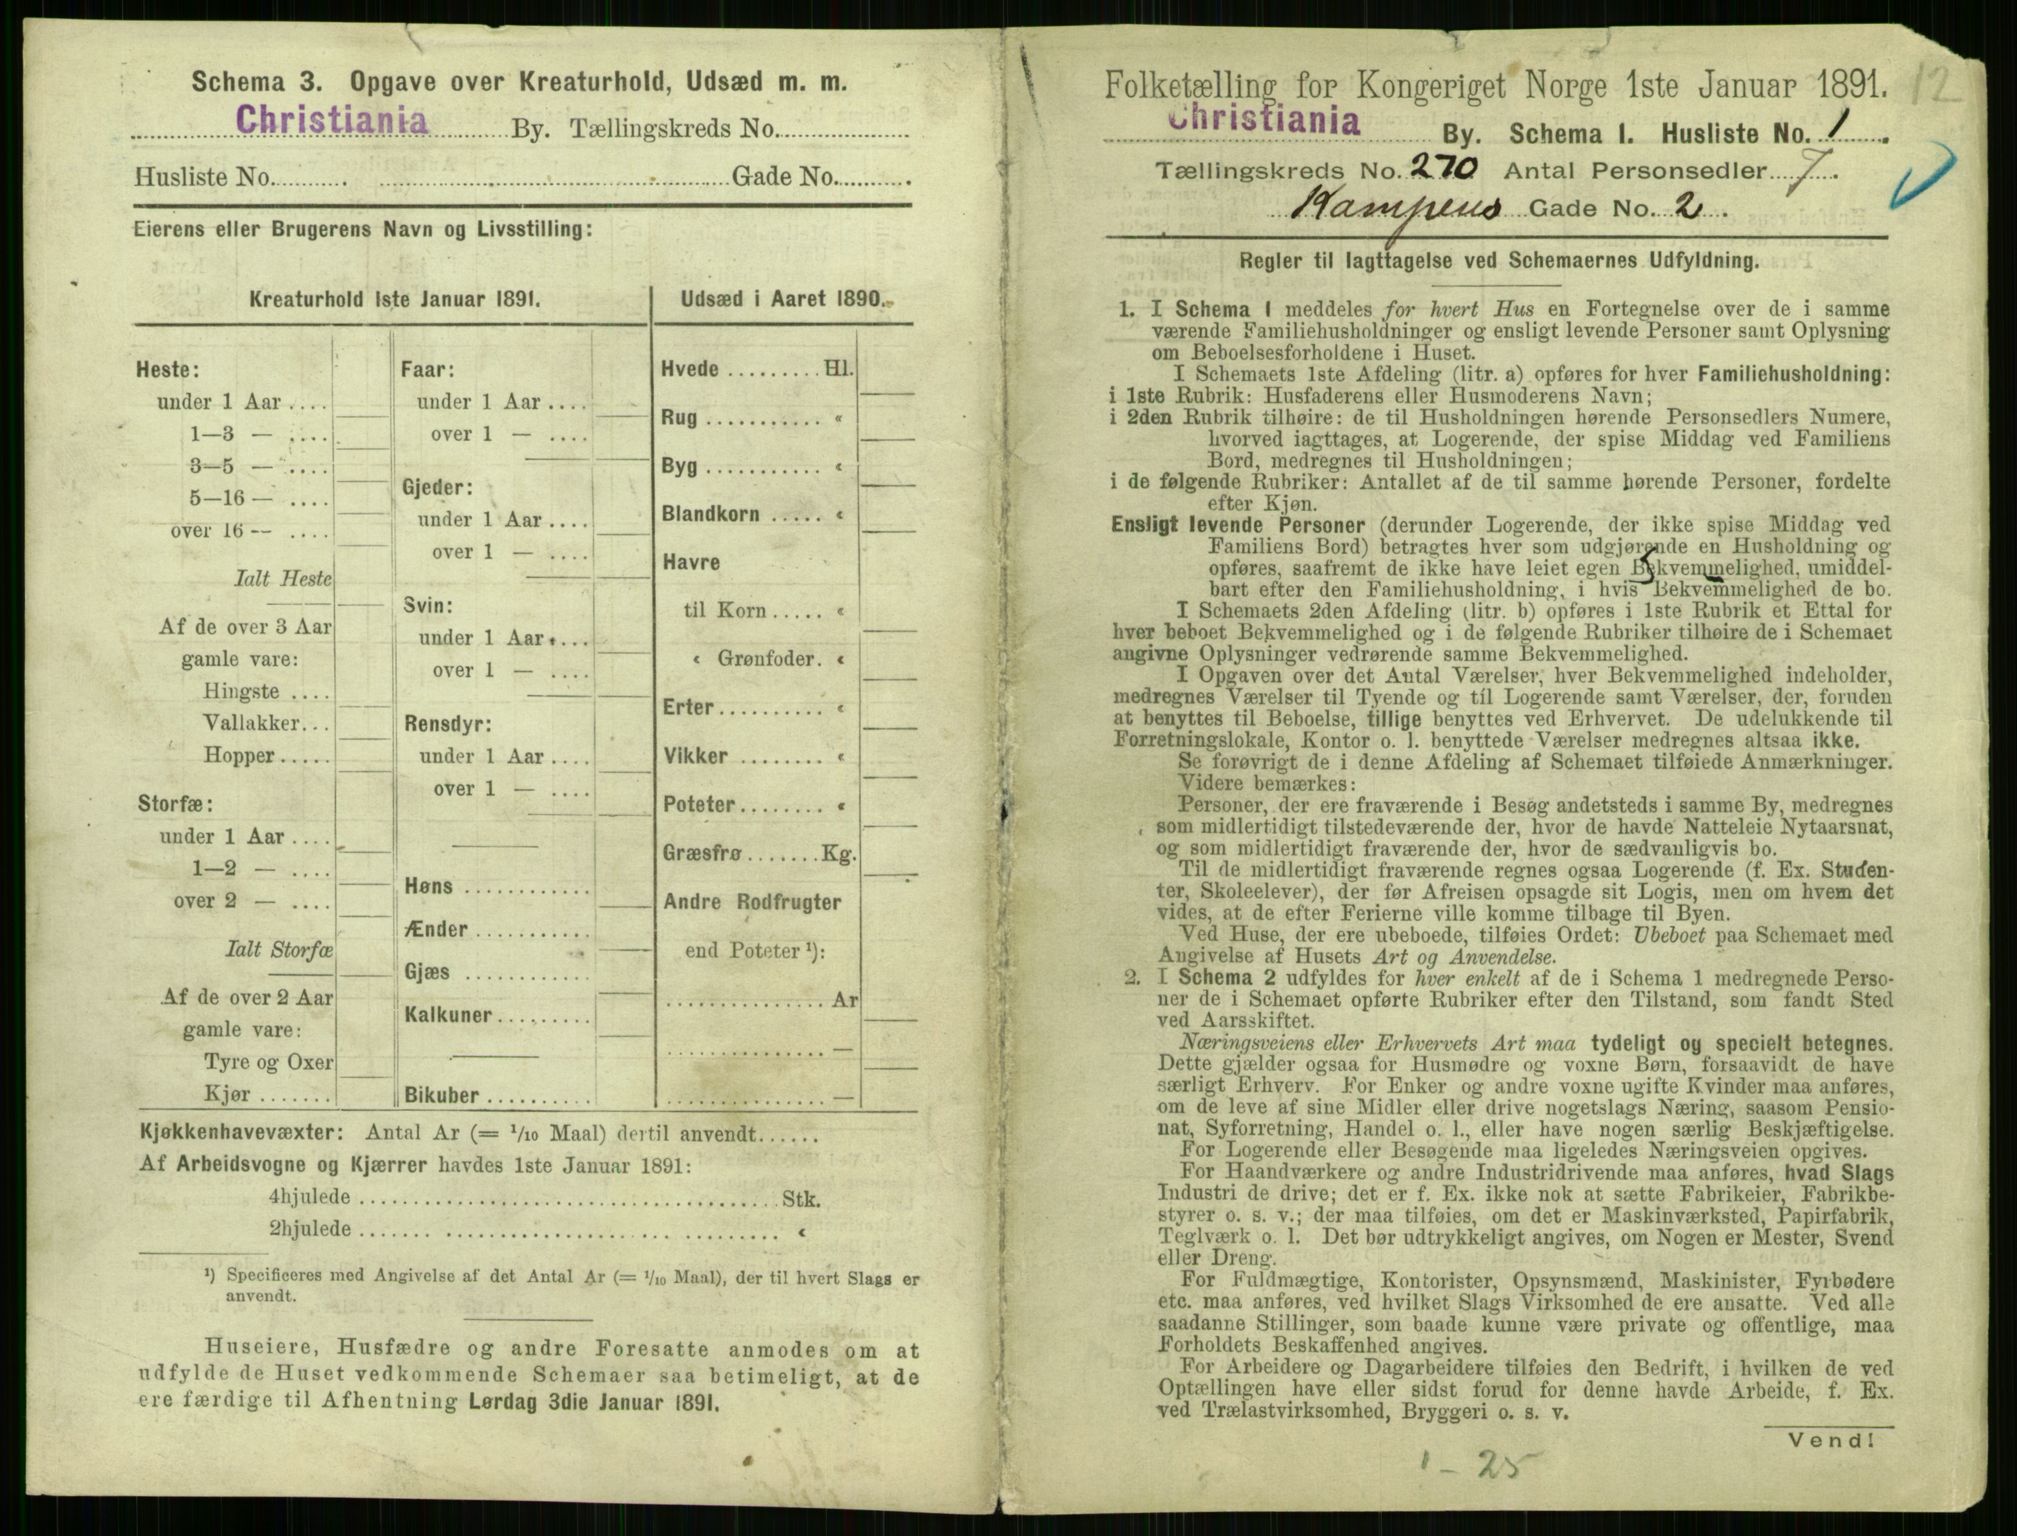 Schema 3. Opgave over Kreaturhold, Udsæd m. m.
Christiania By. Tællingskreds No.
Husliste No. Gade No.
Eierens eller Brugerens Navn og Livsstilling:
Kreaturhold 1ste Januar 1891.
Heste:
under 1 Aar ....
1—3 — ....
3—5 — ....
5—16 — ....
over 16 — ....
Ialt Heste
Af de over 3 Aar
gamle vare:
Hingste ....
Vallakker...
Hopper.....
Storfæ:
under 1 Aar ....
1—2 — ....
over 2 — ....
Ialt Storfæ
Af de over 2 Aar
gamle vare:
Tyre og Oxer
Kjør .......
Faar:
under 1 Aar ....
over 1 — ....
Gjeder:
under 1 Aar ....
over 1 — ....
Svin:
under 1 Aar....
over 1 — ....
Rensdyr:
under 1 Aar ....
over 1 — ....
Høns ............
Ænder ...........
Gjæs ............
Kalkuner.........
Bikuber ..........
Udsæd i Aaret 1890.
Hvede ......... Hl.
Rug ........... «
Byg ........... «
Blandkorn ..... «
Havre
til Korn ..... «
« Grønfoder. «
Erter.......... «
Vikker ........ «
Poteter........ «
Græsfrø .......Kg.
Andre Rodfrugter
end Poteter ¹):
............... Ar
............... —
............... —
Kjøkkenhavevæxter: Antal Ar (= 1/10 Maal) dertil anvendt......
Af Arbeidsvogne og Kjærrer havdes 1ste Januar 1891:
4hjulede ...................................... Stk.
2hjulede ...................................... «
¹) Specificeres med Angivelse af det Antal Ar (= 1/10 Maal), der til hvert Slags er
anvendt.
Huseiere, Husfædre og andre Foresatte anmodes om at
udfylde de Huset vedkommende Schemaer saa betimeligt, at de
ere færdige til Afhentning Lørdag 3die Januar 1891.
Folketælling for Kongeriget Norge 1ste Januar 1891. 12
Christiania By. Schema 1. Husliste No. 1.
Tællingskreds No. 270 Antal Personsedler 7.
Kampens Gade No. 2.
Regler til Iagttagelse ved Schemaernes Udfyldning.
1. I Schema 1 meddeles for hvert Hus en Fortegnelse over de i samme
værende Familiehusholdninger og ensligt levende Personer samt Oplysning
om Beboelsesforholdene i Huset.
I Schemaets 1ste Afdeling (litr. a) opføres for hver Familiehusholdning:
i 1ste Rubrik: Husfaderens eller Husmoderens Navn;
i 2den Rubrik tilhøire: de til Husholdningen hørende Personsedlers Numere,
hvorved iagttages, at Logerende, der spise Middag ved Familiens
Bord, medregnes til Husholdningen;
i de følgende Rubriker: Antallet af de til samme hørende Personer, fordelte
efter Kjøn.
Ensligt levende Personer (derunder Logerende, der ikke spise Middag ved
Familiens Bord) betragtes hver som udgjørende en Husholdning og
opføres, saafremt de ikke have leiet egen Bekvemmelighed, umiddel-
bart efter den Familiehusholdning, i hvis Bekvemmelighed de bo.
I Schemaets 2den Afdeling (litr. b) opføres i 1ste Rubrik et Ettal for
hver beboet Bekvemmelighed og i de følgende Rubriker tilhøire de i Schemaet
angivne Oplysninger vedrørende samme Bekvemmelighed.
I Opgaven over det Antal Værelser, hver Bekvemmelighed indeholder,
medregnes Værelser til Tyende og til Logerende samt Værelser, der, foruden
at benyttes til Beboelse, tillige benyttes ved Erhvervet. De udelukkende til
Forretningslokale, Kontor o. l. benyttede Værelser medregnes altsaa ikke.
Se forøvrigt de i denne Afdeling af Schemaet tilføiede Anmærkninger.
Videre bemærkes:
Personer, der ere fraværende i Besøg andetsteds i samme By, medregnes
som midlertidigt tilstedeværende der, hvor de havde Natteleie Nytaarsnat,
og som midlertidigt fraværende der, hvor de sædvanligvis bo.
Til de midlertidigt fraværende regnes ogsaa Logerende (f. Ex. Studen-
ter, Skoleelever), der før Afreisen opsagde sit Logis, men om hvem det
vides, at de efter Ferierne ville komme tilbage til Byen.
Ved Huse, der ere ubeboede, tilføies Ordet: Ubeboet paa Schemaet med
Angivelse af Husets Art og Anvendelse.
2. I Schema 2 udfyldes for hver enkelt af de i Schema 1 medregnede Perso-
ner de i Schemaet opførte Rubriker efter den Tilstand, som fandt Sted
ved Aarsskiftet.
Næringsveiens eller Erhvervets Art maa tydeligt og specielt betegnes.
Dette gjælder ogsaa for Husmødre og voxne Børn, forsaavidt de have
særligt Erhverv. For Enker og andre voxne ugifte Kvinder maa anføres,
om de leve af sine Midler eller drive nogetslags Næring, saasom Pensio-
nat, Syforretning, Handel o. l., eller have nogen særlig Beskjæftigelse.
For Logerende eller Besøgende maa ligeledes Næringsveien opgives.
For Haandværkere og andre Industridrivende maa anføres, hvad Slags
Industri de drive; det er f. Ex. ikke nok at sætte Fabrikeier, Fabrikbe-
styrer o. s. v.; der maa tilføies, om det er Maskinværksted, Papirfabrik,
Teglværk o. l. Det bør udtrykkeligt angives, om Nogen er Mester, Svend
eller Dreng.
For Fuldmægtige, Kontorister, Opsynsmænd, Maskinister, Fyrbødere
etc. maa anføres, ved hvilket Slags Virksomhed de ere ansatte. Ved alle
saadanne Stillinger, som baade kunne være private og offentlige, maa
Forholdets Beskaffenhed angives.
For Arbeidere og Dagarbeidere tilføies den Bedrift, i hvilken de ved
Optællingen have eller sidst forud for denne havde Arbeide, f. Ex.
ved Trælastvirksomhed, Bryggeri o. s. v.
Vend!
1 - 25